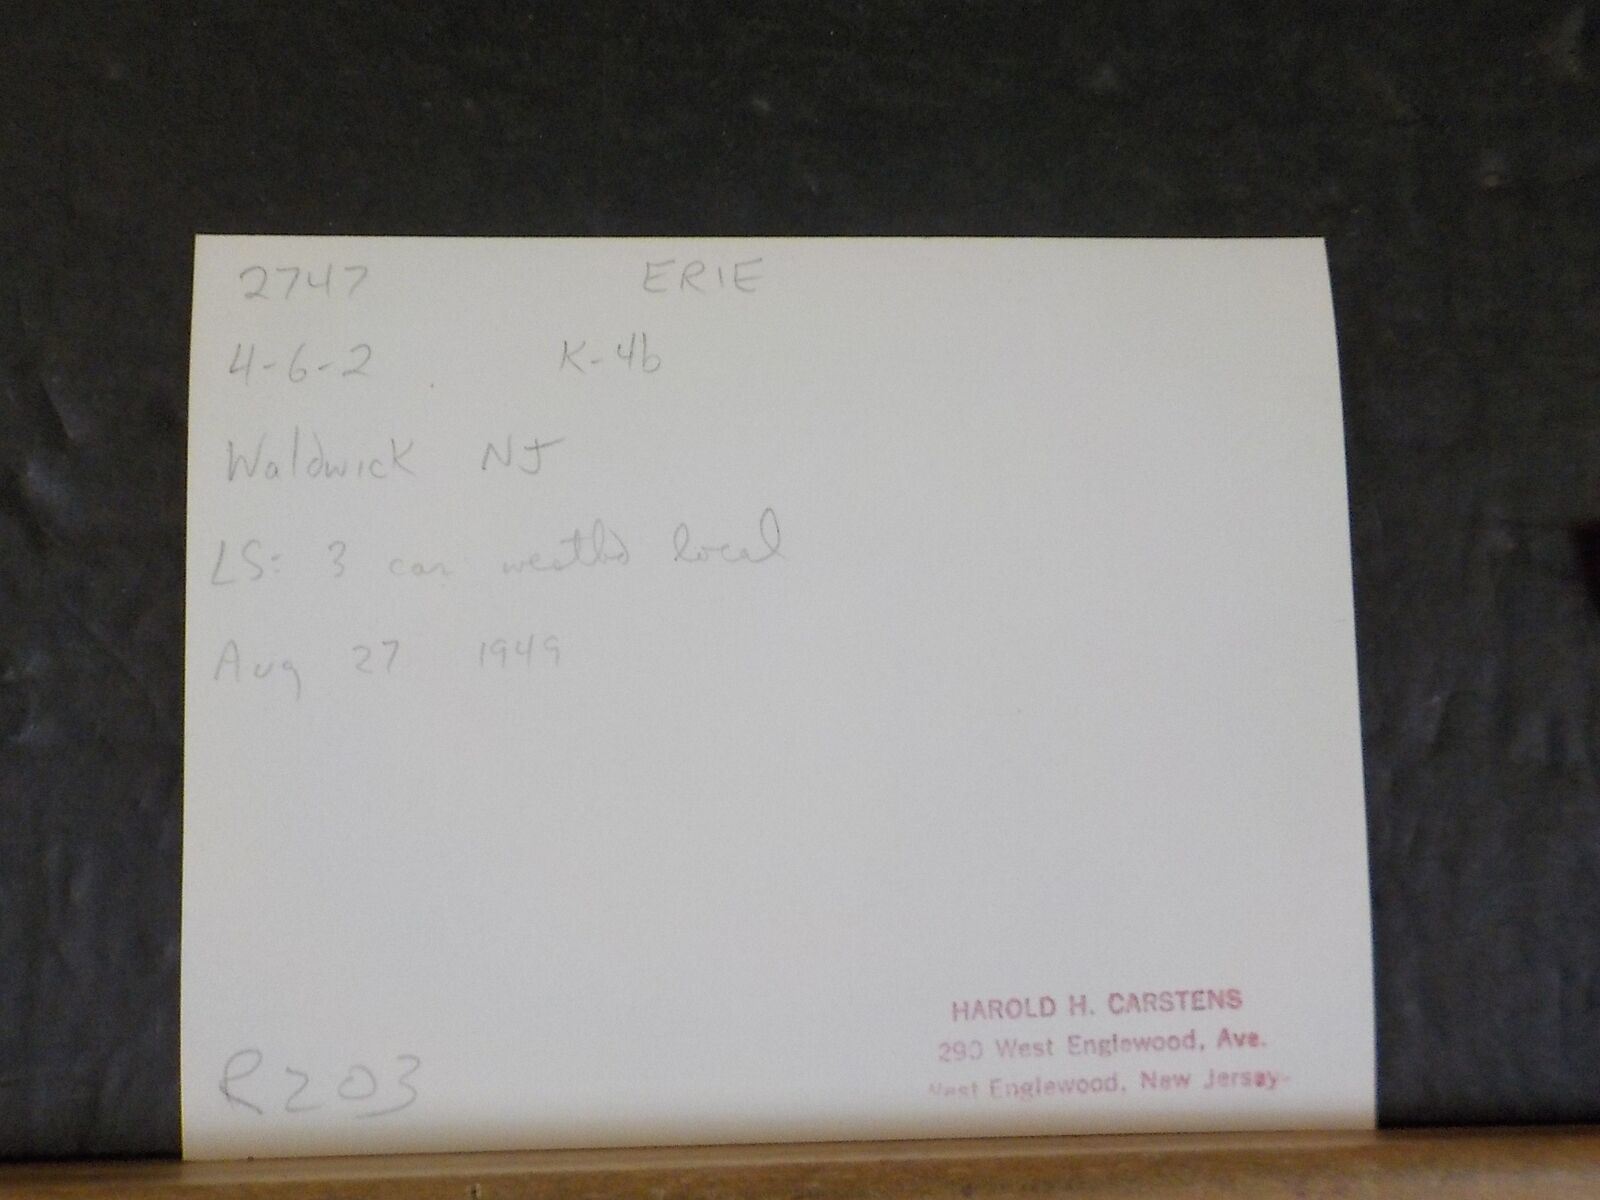 2747 ERIE
4-6-2 K-4b
Waldwick NJ
LS: 3 car westbd local
Aug 27 1949
R203
HAROLD H. CARSTENS
290 West Englewood, Ave.
West Englewood, New Jersey